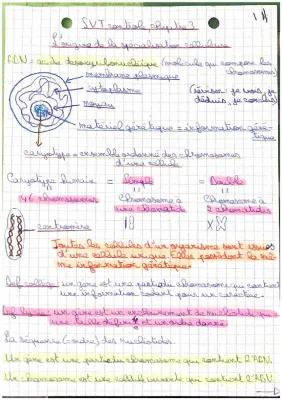 SVT control, chapitre 3
L'origine de la spécialisation cellulaire
ADN = acide désoxyribonucléique (molécule qui compose les chromosomes)
membrane plasmique
cytoplasme
noyau
matériel génétique = information génétique
caryotype = ensemble ordonné des chromosomes
d'une cellule
Caryotype humain = Simple = Double
46 chromosomes chromosome à chromosome à
une chromatide 2 chromatides
centromère
Toutes les cellules d'un organisme sont issues
d'une cellule unique. Elles possèdent la même
information génétique.
un gène est une partie du chromosome qui contient
une information codant pour un caractère.
un gène est un enchaînement de nucléotides
une taille définie et un ordre donné
La séquence (=ordre) des nucléotides.
Un gène est une partie du chromosome qui contient l'ADN.
Un chromosome est une cellule qui contient l'ADN.